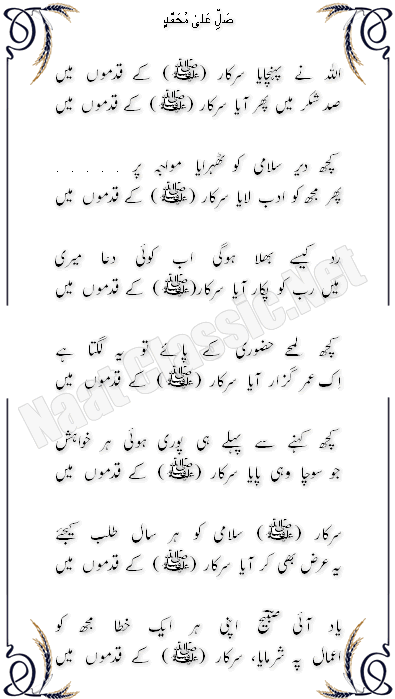 صَلِّ عَلیٰ مُحَمَّدٍ
اللہ نے پہنچایا سرکار (ﷺ) کے قدموں میں
صد شکر میں پھر آیا سرکار (ﷺ) کے قدموں میں
کچھ دیر سلامی کو ٹھہرایا مواجہ پر . . . . .
پھر مجھ کو ادب لایا سرکار (ﷺ) کے قدموں میں
رد کیسے بھلا ہوگی اب کوئی دعا میری
میں رب کو پکار آیا سرکار(ﷺ) کے قدموں میں
کچھ لمحے حضوری کے پائے تو یہ لگتا ہے
اِک عمر گزار آیا سرکار (ﷺ) کے قدموں میں
کچھ کہنے سے پہلے ہی پوری ہوئی ہر خواہش
جو سوچا وہی پایا سرکار (ﷺ) کے قدموں میں
سرکار (ﷺ) سلامی کو ہر سال طلب کیجئے
یہ عرض بھی کر آیا سرکار (ﷺ) کے قدموں میں
یاد آئی صبیح اپنی ہر ایک خطا مجھ کو
اعمال پہ شرمایا، سرکار (ﷺ) کے قدموں میں
NaatClassic.Net